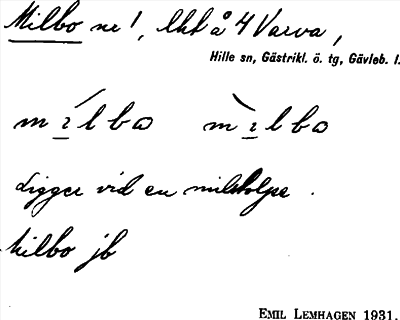 Milbo nr 1, lht å 4 Varva,
Hille sn, Gästrikl. ö. tg, Gävleb. l.
mílbo mìlbo
Ligger vid en milstolpe.
Milbo jb
EMIL LEMHAGEN 1931.